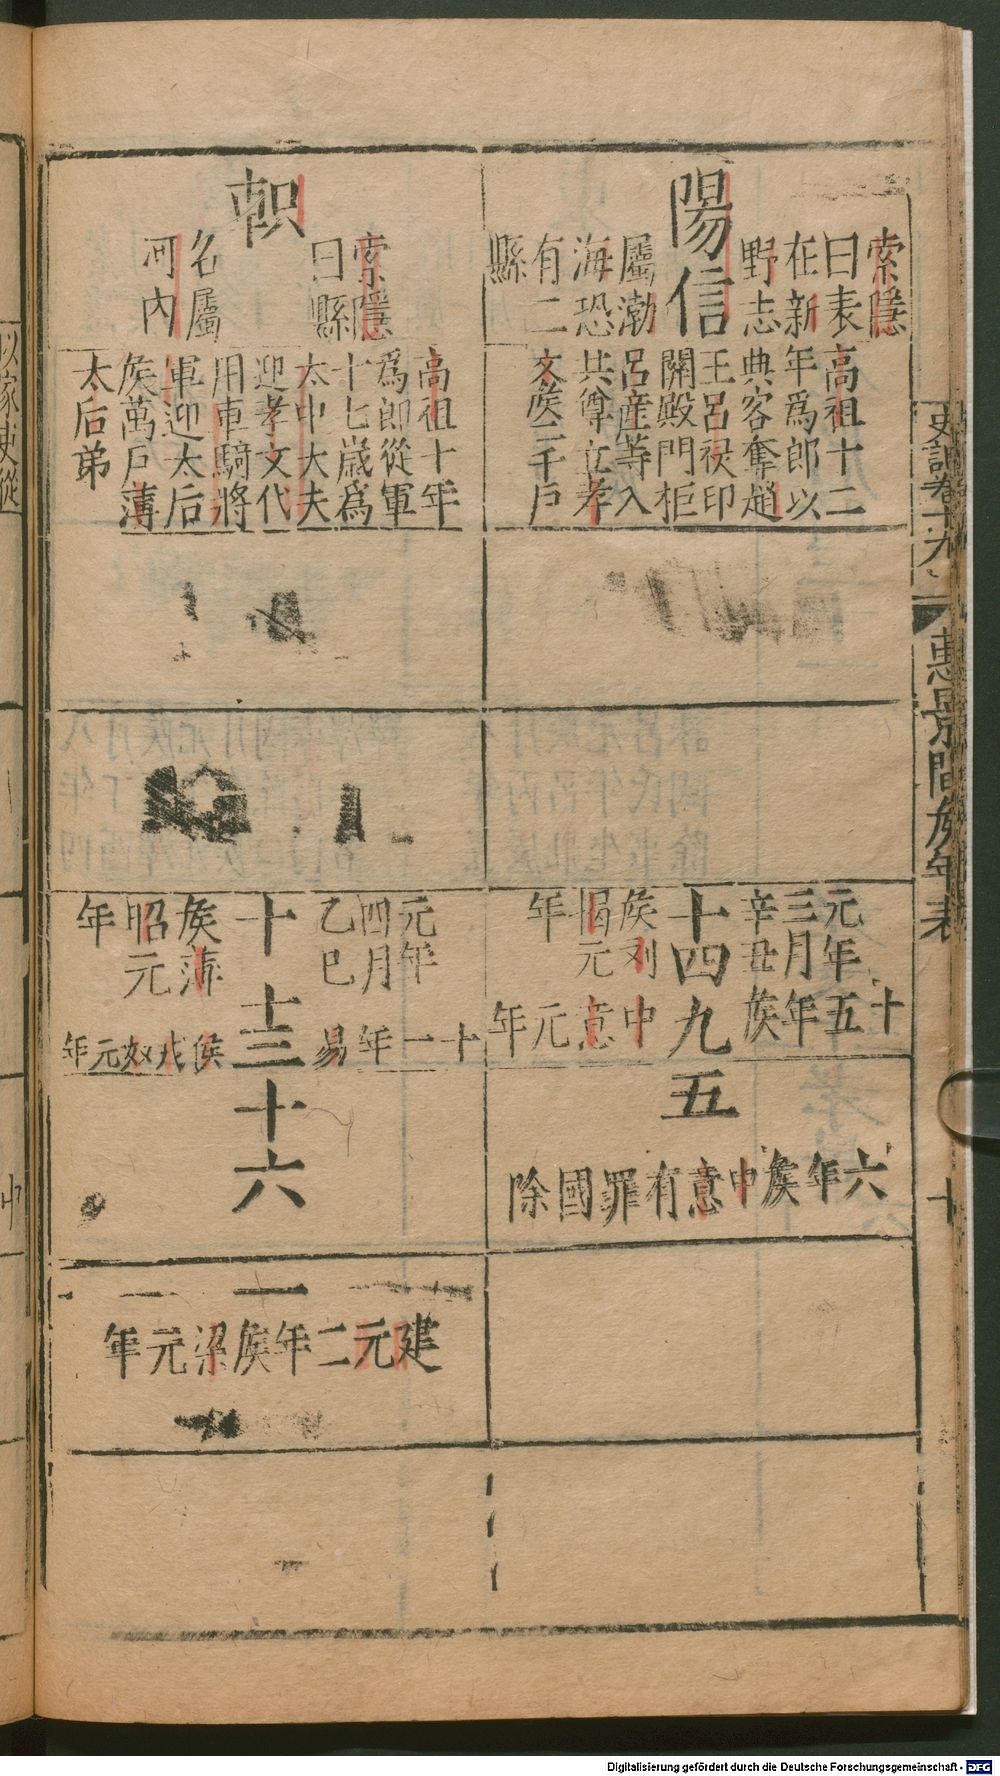 史記卷十九
惠景間矦年表
十
陽信
索隱
曰表
在新
野志
屬渤
海恐
有二
縣
高祖十二
年爲郎以
典客奪趙
王呂祿印
關殿門柜
呂產等入
共尊立孝
文矦二千戶
元年
三月
辛丑
矦
十四
矦刘
揭元
年
十五年
九
中意元年
五
六年矦中意有罪國除
軹
索隱
曰縣
名屬
河內
高祖十年
爲郎從軍
十七歲爲
太中大夫
迎孝文代
用車騎將
軍迎太后
矦萬戶薄
太后弟
元年
四月
乙巳
十
矦薄
昭元
年
十一年易
十三
侯戎奴元年
十六
一
建元二年矦梁元年
以家吏從
中
Digitalisierung gefördert durch die Deutsche Forschungsgemeinschaft - DFG